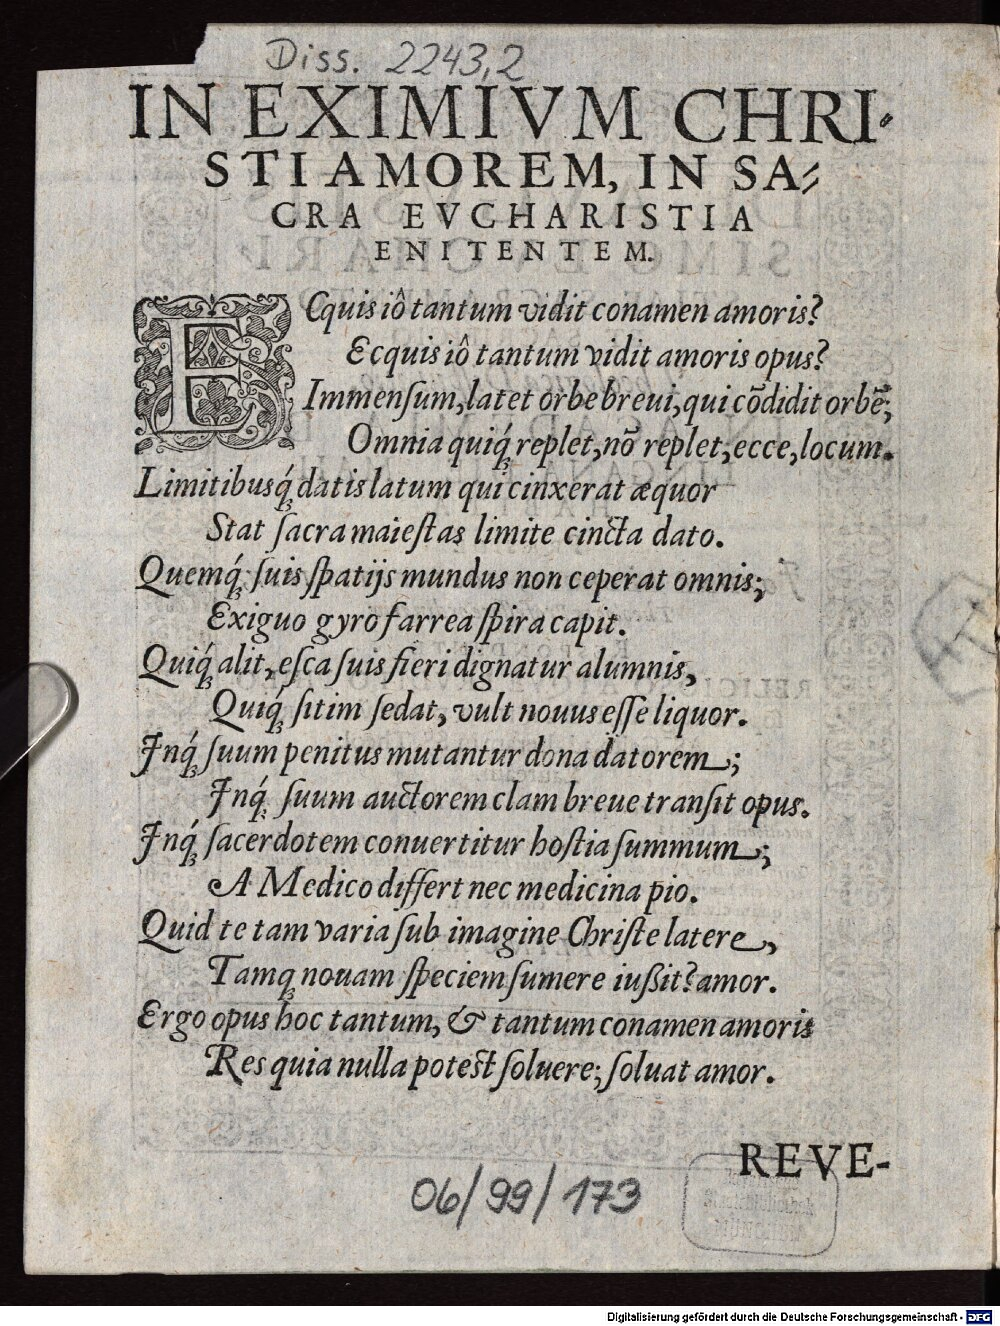 Diss. 2243,2
IN EXIMIVM CHRI-
STI AMOREM, IN SA-
CRA EVCHARISTIA
ENITENTEM.
ECquis iô tantum vidit conamen amoris?
Ecquis iô tantum vidit amoris opus?
Immenſum, latet orbe breui, qui cõdidit orbẽ;
Omnia quiq́; replet, nõ replet, ecce, locum.
Limitibusq́; datis latum qui cinxerat æquor
Stat ſacra maieſtas limite cincta dato.
Quemq́; ſuis ſpatijs mundus non ceperat omnis;
Exiguo gyro farrea ſpira capit.
Quiq́; alit, eſca ſuis fieri dignatur alumnis,
Quiq́; ſitim ſedat, vult nouus eſſe liquor.
Inq́; ſuum penitus mutantur dona datorem;
Inq́; ſuum auctorem clam breue tranſit opus.
Inq́; ſacerdotem conuertitur hoſtia ſummum;
A Medico differt nec medicina pio.
Quid te tam varia ſub imagine Chriſte latere,
Tamq; nouam ſpeciem ſumere iußit? amor.
Ergo opus hoc tantum, & tantum conamen amoris
Res quia nulla poteſt ſoluere; ſoluat amor.
REVE-
06/99/173
Digitalisierung gefördert durch die Deutsche Forschungsgemeinschaft - DFG